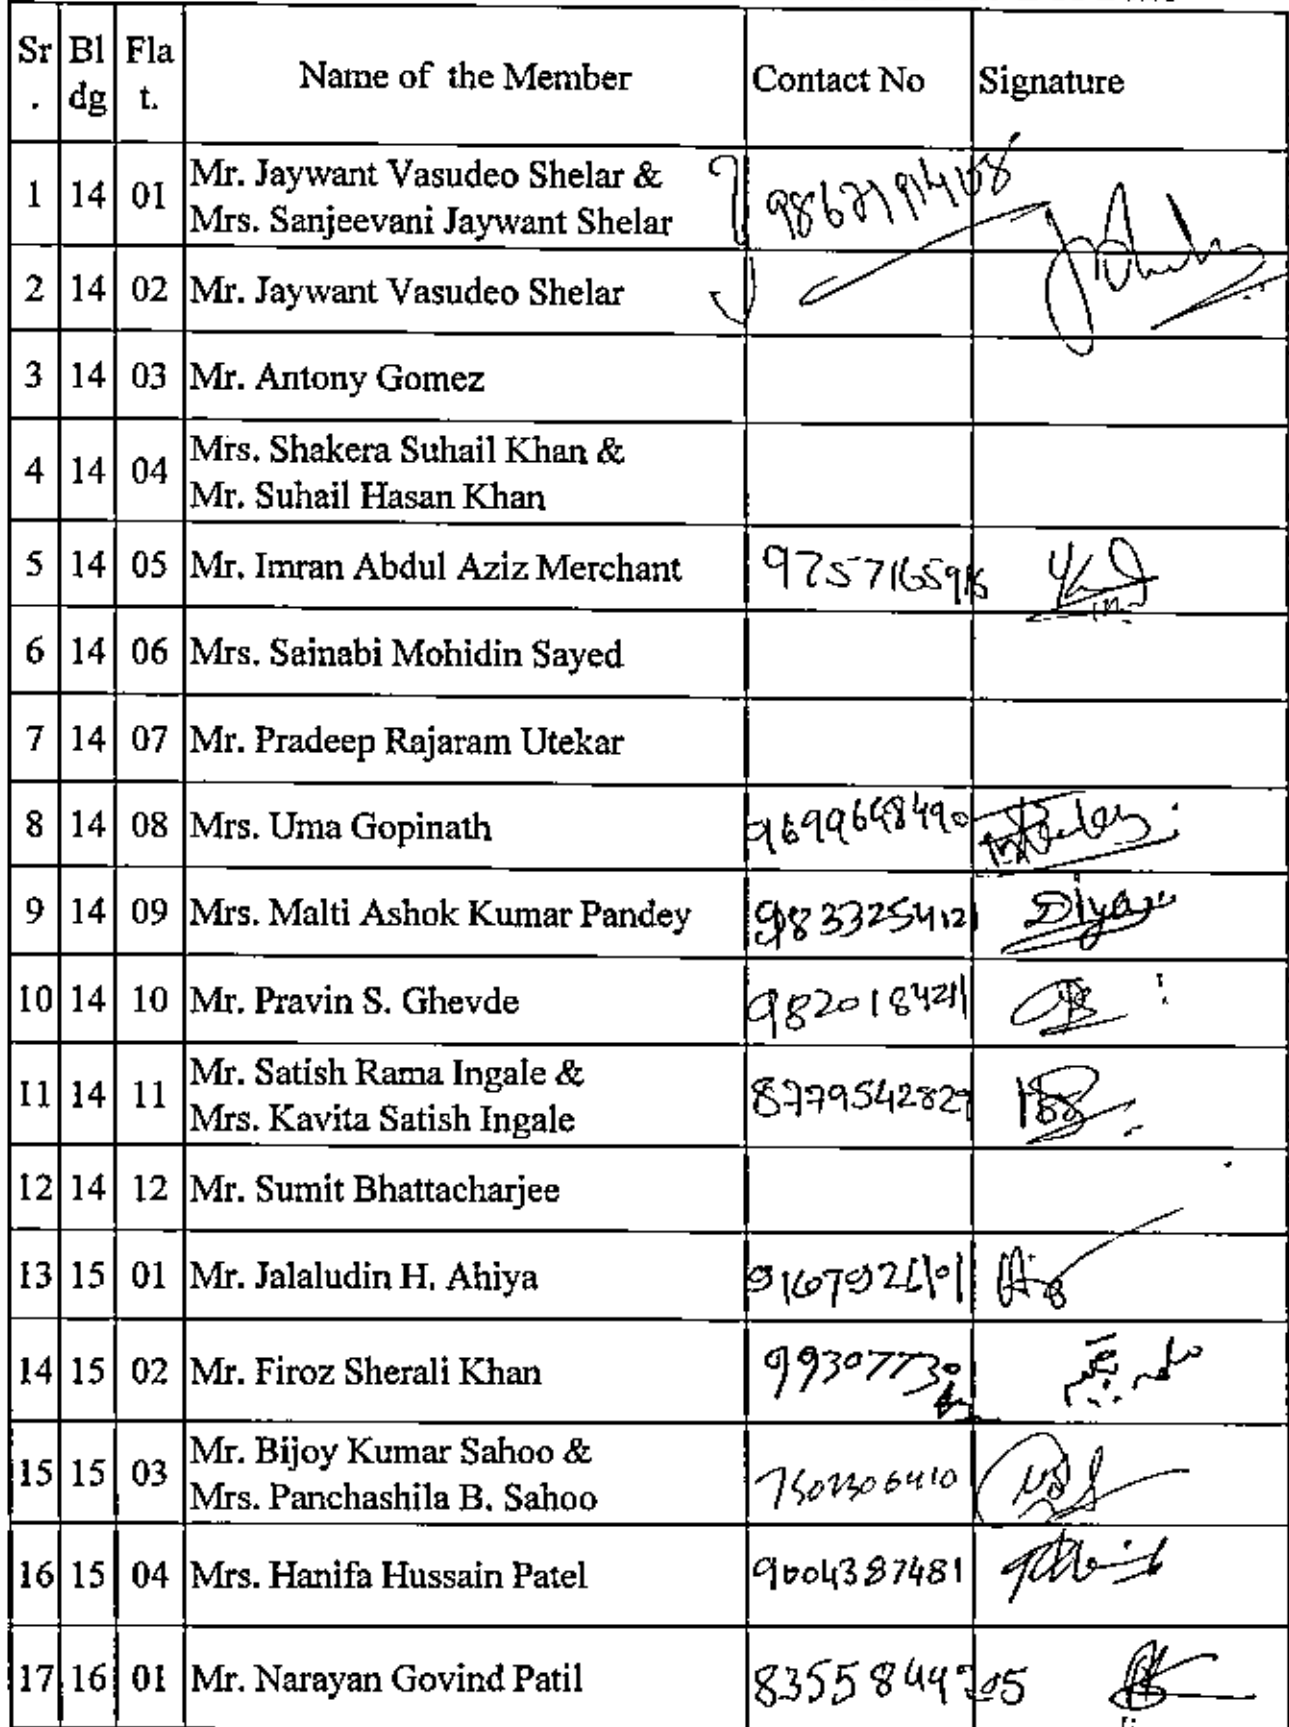 Sr. Bldg Flat. Name of the Member Contact No Signature
1 14 01 Mr. Jaywant Vasudeo Shelar &
Mrs. Sanjeevani Jaywant Shelar
2 14 02 Mr. Jaywant Vasudeo Shelar
3 14 03 Mr. Antony Gomez
4 14 04 Mrs. Shakera Suhail Khan &
Mr. Suhail Hasan Khan
5 14 05 Mr. Imran Abdul Aziz Merchant
6 14 06 Mrs. Sainabi Mohidin Sayed
7 14 07 Mr. Pradeep Rajaram Utekar
8 14 08 Mrs. Uma Gopinath 9699698490
9 14 09 Mrs. Malti Ashok Kumar Pandey 9833254121 Diya
10 14 10 Mr. Pravin S. Ghevde 9820184211
11 14 11 Mr. Satish Rama Ingale &
Mrs. Kavita Satish Ingale 8779542827
12 14 12 Mr. Sumit Bhattacharjee
13 15 01 Mr. Jalaludin H. Ahiya
14 15 02 Mr. Firoz Sherali Khan
15 15 03 Mr. Bijoy Kumar Sahoo &
Mrs. Panchashila B. Sahoo
16 15 04 Mrs. Hanifa Hussain Patel 9004387481
17 16 01 Mr. Narayan Govind Patil